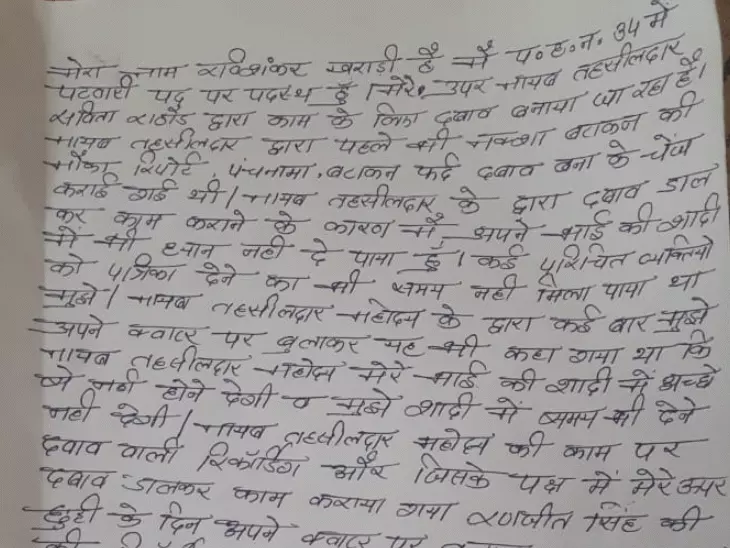 मेरा नाम रविशंकर खराड़ी है मैं प०ह०न० 34 में
पटवारी पद पर पदस्थ हूँ। मेरे उपर नायब तहसीलदार
सविता राठौड़ द्वारा काम के लिए दबाव बनाया जा रहा है।
नायब तहसीलदार द्वारा पहले भी नक्शा बटाकन की
मौका रिपोर्ट, पंचनामा, बटाकन फर्द दबाव बना के चेंज
कराई गई थी। नायब तहसीलदार के द्वारा दबाव डाल
कर काम कराने के कारण मैं अपने भाई की शादी
में भी ध्यान नही दे पाया हुं। कई परिचित व्यक्तियो
को पत्रिका देने का भी समय नही मिला पाया था
मुझे। नायब तहसीलदार महोदय के द्वारा कई बार मुझे
अपने क्वाटर पर बुलाकर यह भी कहा गया था कि
नायब तहसीलदार महोदय मेरे भाई की शादी में अच्छे
से नही होने देगी व मुझे शादी में समय भी देने
नही देगी। नायब तहसीलदार महोदय की काम पर
दबाव वाली रिकॉर्डिंग और जिसके पक्ष में मेरे उपर
दबाव डालकर काम कराया गया रणजीत सिंह की
छुट्टी के दिन अपने क्वाटर पर